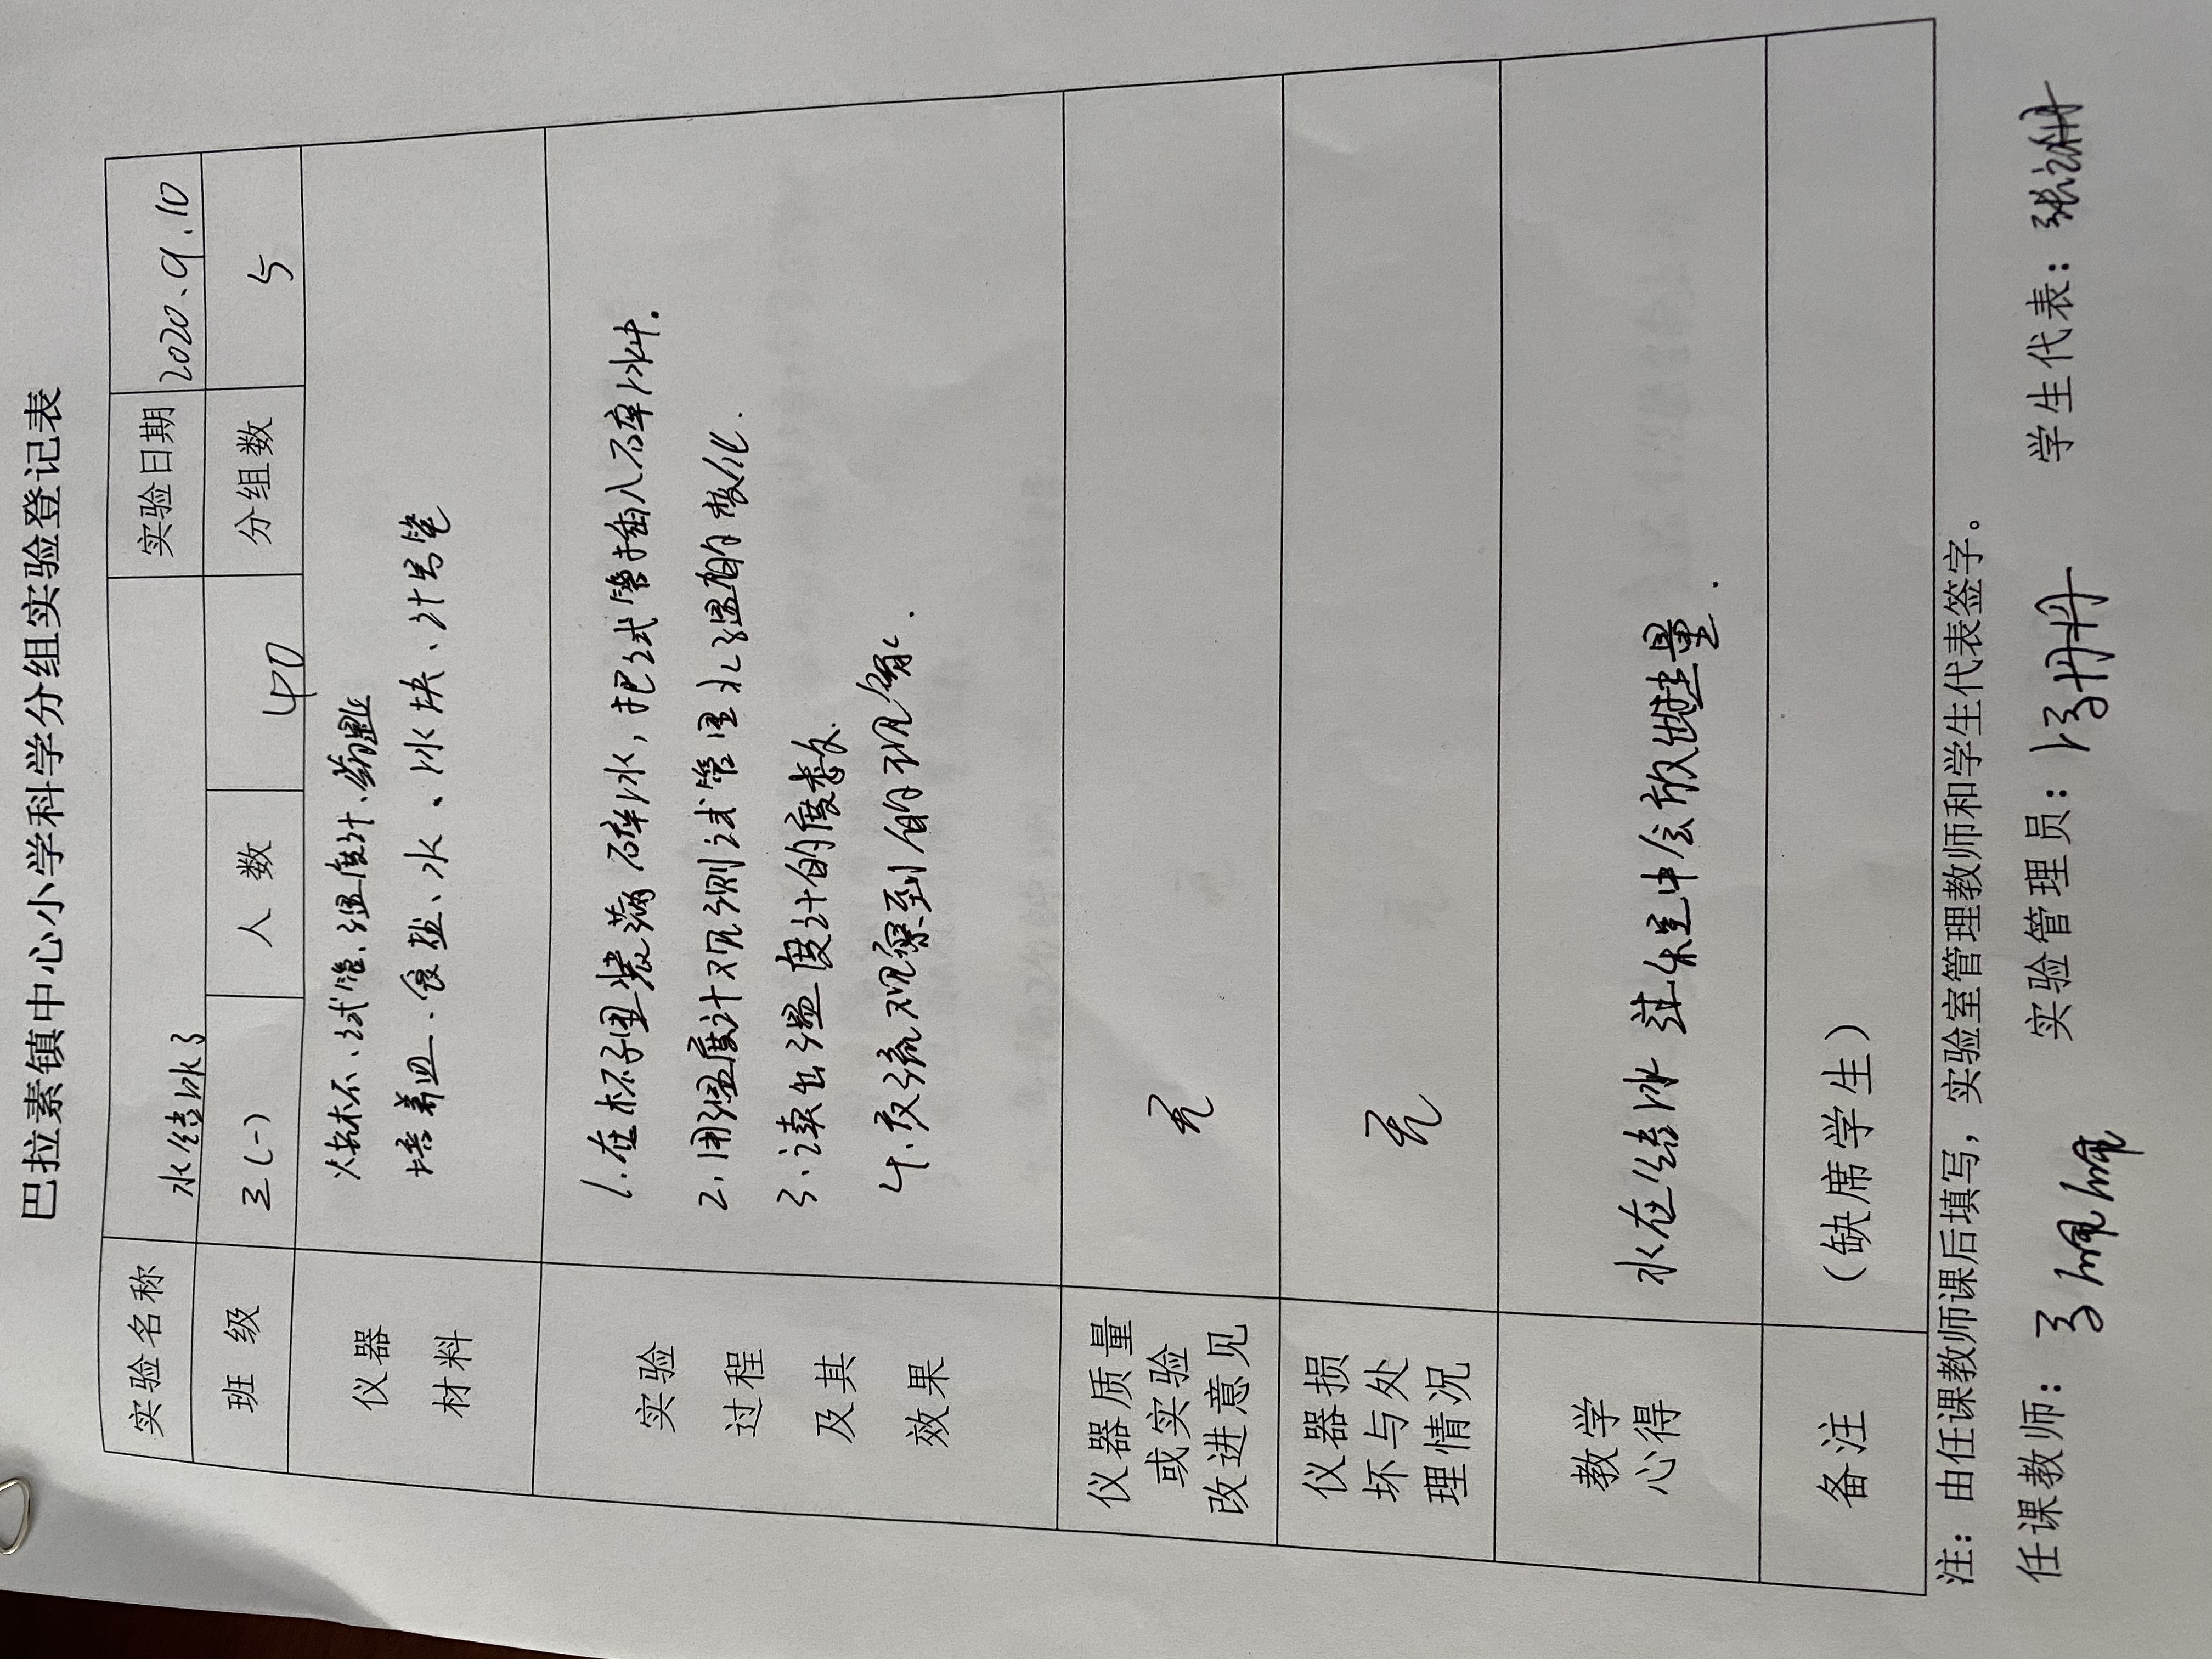 巴拉素镇中心小学科学分组实验登记表
实验名称 水结冰了 实验日期 2020.9.10
班 级 三(一) 人 数 40 分组数 5
仪器 烧杯、试管、温度计、药匙
材料 培养皿、食盐、水、冰块、计号笔
实验 1.在杯子里装满碎冰,把试管插入碎冰中.
过程 2.用温度计观测试管里水温的变化.
及其 3.读出温度计的度数.
效果 4.交流观察到的现象.
仪器质量
或实验 无
改进意见
仪器损
坏与处 无
理情况
教学
心得 水在结冰过程中会放出热量.
备注 (缺席学生)
注:由任课教师课后填写,实验室管理教师和学生代表签字。
任课教师: 实验管理员: 学生代表:张